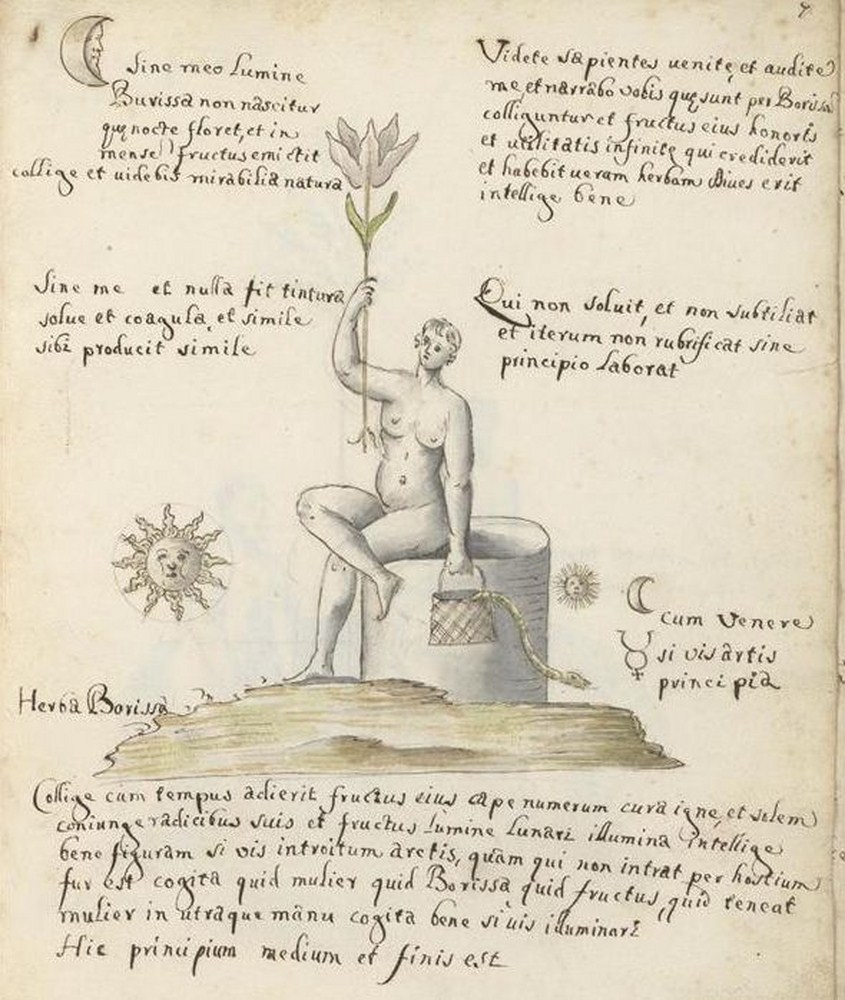 7
Sine meo Lumine
Burissa non nascitur
quę nocte floret, et in
mense fructus emictit
collige et uidebis mirabilia natura
Videte sapientes uenite, et audite
me, et narrabo vobis quę sunt per Borissa
colliguntur et fructus eius honoris
et utilitatis infinite qui crediderit
et habebit ueram herbam Diues erit
intellige bene
Sine me et nulla fit tintura
solue et coagula, et simile
sibi producit simile
Qui non soluit, et non subtiliat
et iterum non rubrificat sine
principio Laborat
cum Venere
si vis artis
principia
Herba Borissa
Collige cum tempus adierit fructus eius cape numerum cura igne, et solem
coniunge radicibus suis et fructus Lumine Lunari illumina Intellige
bene figuram si vis introitum arctis, quam qui non intrat per hostium
fur est cogita quid mulier quid Borissa quid fructus, quid teneat
mulier in utraque manu cogita bene si uis illuminari
Hic principium medium et finis est